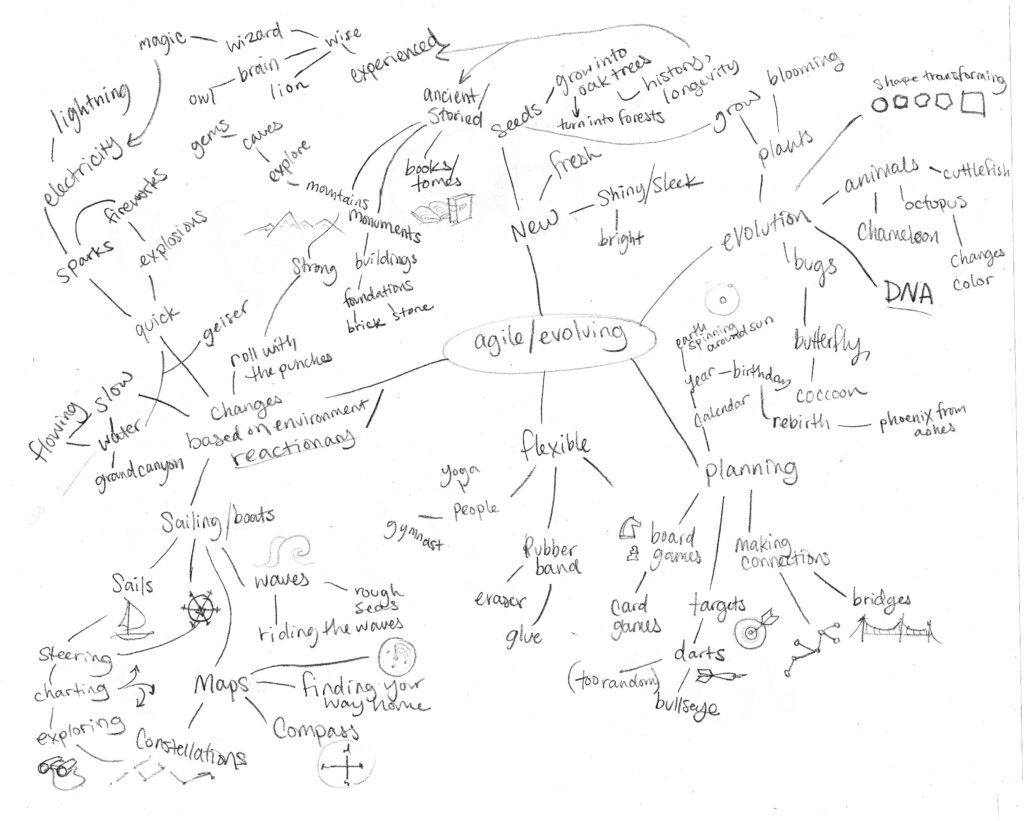 agile/evolving
New
fresh
Shiny/Sleek
bright
Seeds
grow into
oak trees
turn into forests
history,
longevity
grow
experienced
ancient
Storied
books/
tomes
mountains
monuments
explore
caves
gems
Strong
buildings
foundations
brick stone
wise
wizard
magic
brain
owl
lion
lightning
electricity
fireworks
sparks
explosions
quick
geiser
roll with
the punches
changes
based on environment
reactionary
slow
flowing
water
grand canyon
evolution
plants
blooming
shape transforming
animals
cuttlefish
octopus
chameleon
changes
color
DNA
bugs
butterfly,
coccoon
earth
spinning
around sun
year
birthday
calendar
rebirth
phoenix from
ashes
planning
board
games
card
games
targets
darts
(too random)
bullseye
making
connections
bridges
flexible
people
yoga
gymnast
Rubber
band
eraser
glue
Sailing/boats
Sails
waves
rough
seas
riding the waves
steering
charting
exploring
Maps
finding your
way home
Compass
Constellations